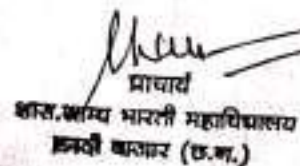 प्राचार्य
शास.ग्राम्य भारती महाविद्यालय
बाजार (छ.ग.)